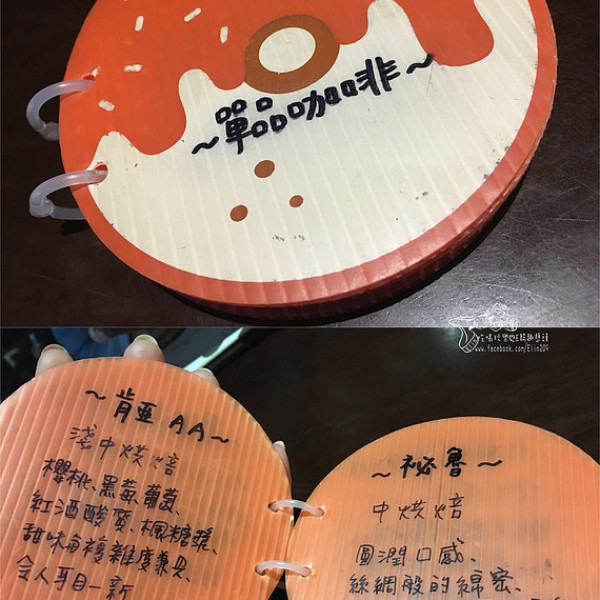 ~單品咖啡~
www.facebook.com/Ellin204
~肯亞 AA~
淺中烘焙
櫻桃、黑莓、葡萄、
紅酒酸質、楓糖漿、
甜味與複雜度兼具、
令人耳目一新
~祕魯~
中烘焙
圓潤口感、
絲綢般的綿密、